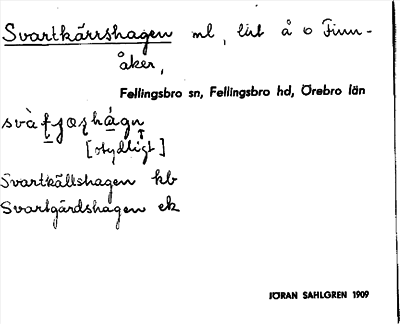 Svartkärrshagen ml, lit å o Finn-
åker,
Fellingsbro sn, Fellingsbro hd, Örebro län
[otydligt]
Svartkällshagen kb
Svartgärdshagen ek
JÖRAN SAHLGREN 1909